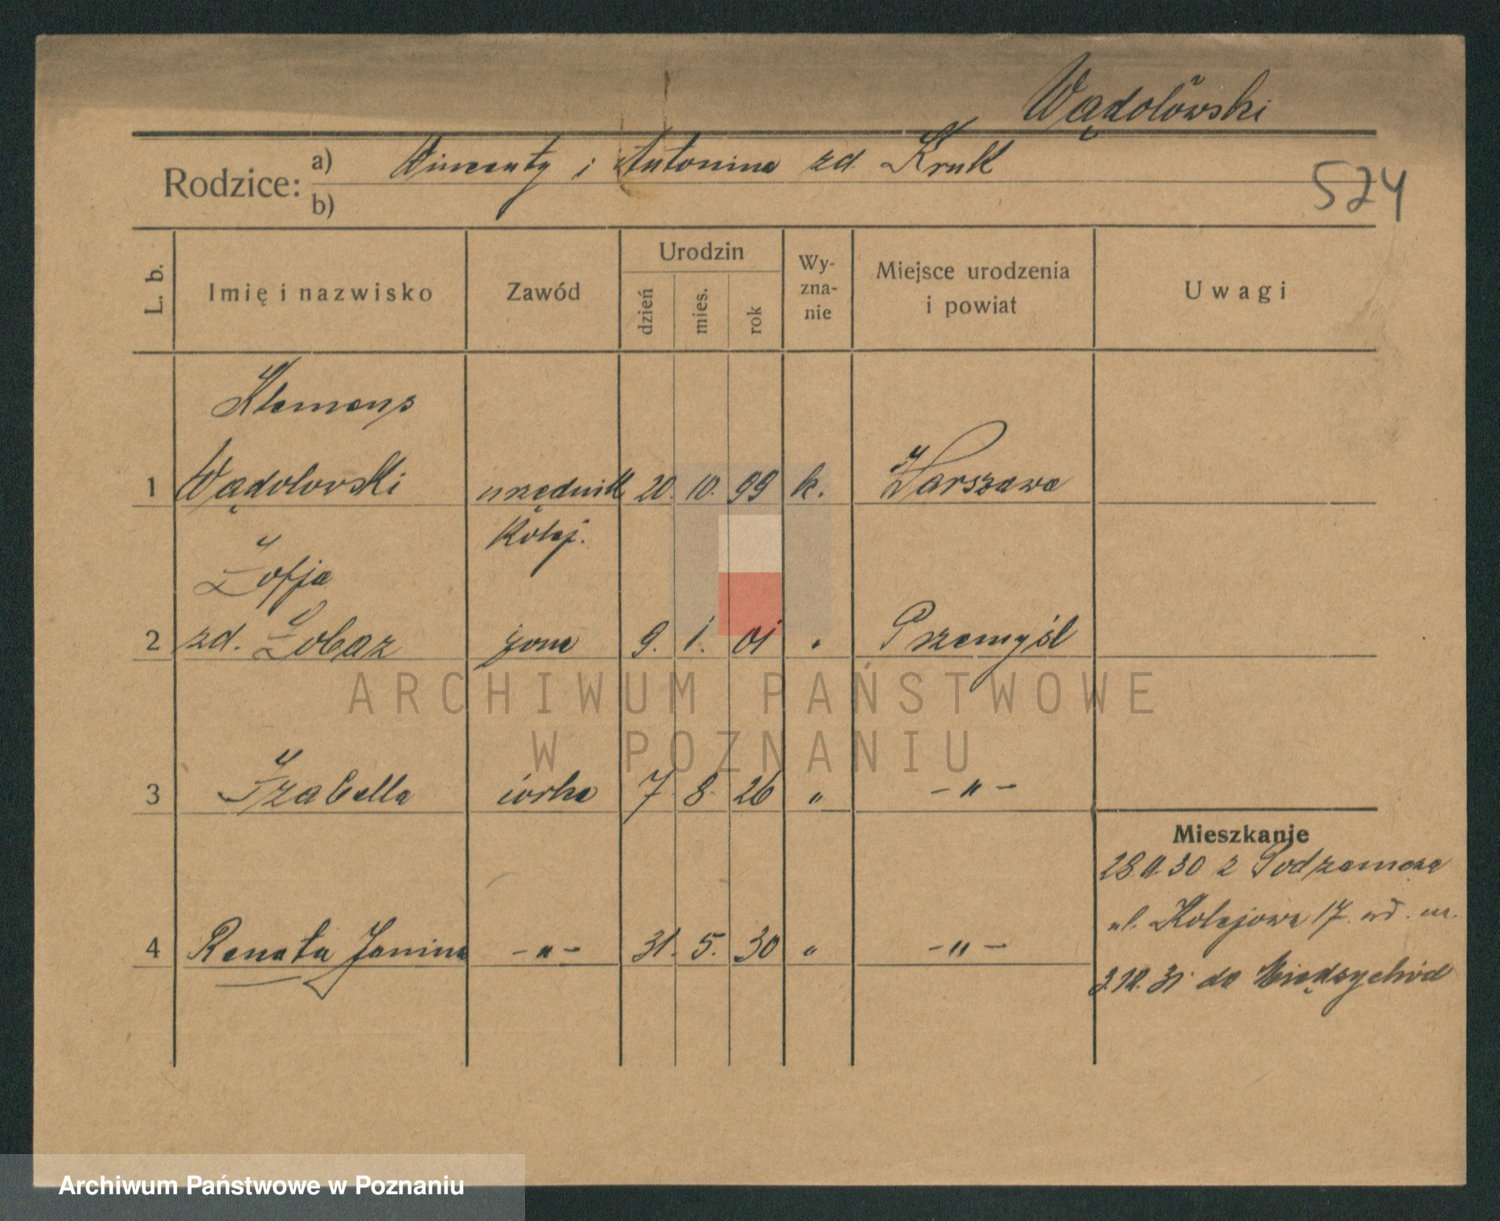 Wądołowski
Rodzice: a) Wincenty i Antonina zd. Kruk
b)
574
L. b. Imię i nazwisko Zawód Urodzin dzień mies. rok Wy-zna-nie Miejsce urodzenia i powiat Uwagi
Klemens
1 Wądołowski urzędnik 20. 10. 99 k. Warszawa
kolej.
Zofja
2 zd. Łobaz żona 9. 1. 01 " Przemyśl
ARCHIWUM PAŃSTWOWE
W POZNANIU
3 Izabella córka 7 8 26 " - " -
Mieszkanie
28 30 z Podzamcza
ul. Kolejowa 17
4 Renata Janina - " - 31. 5. 30 " - " -
31 do Międzychód
Archiwum Państwowe w Poznaniu